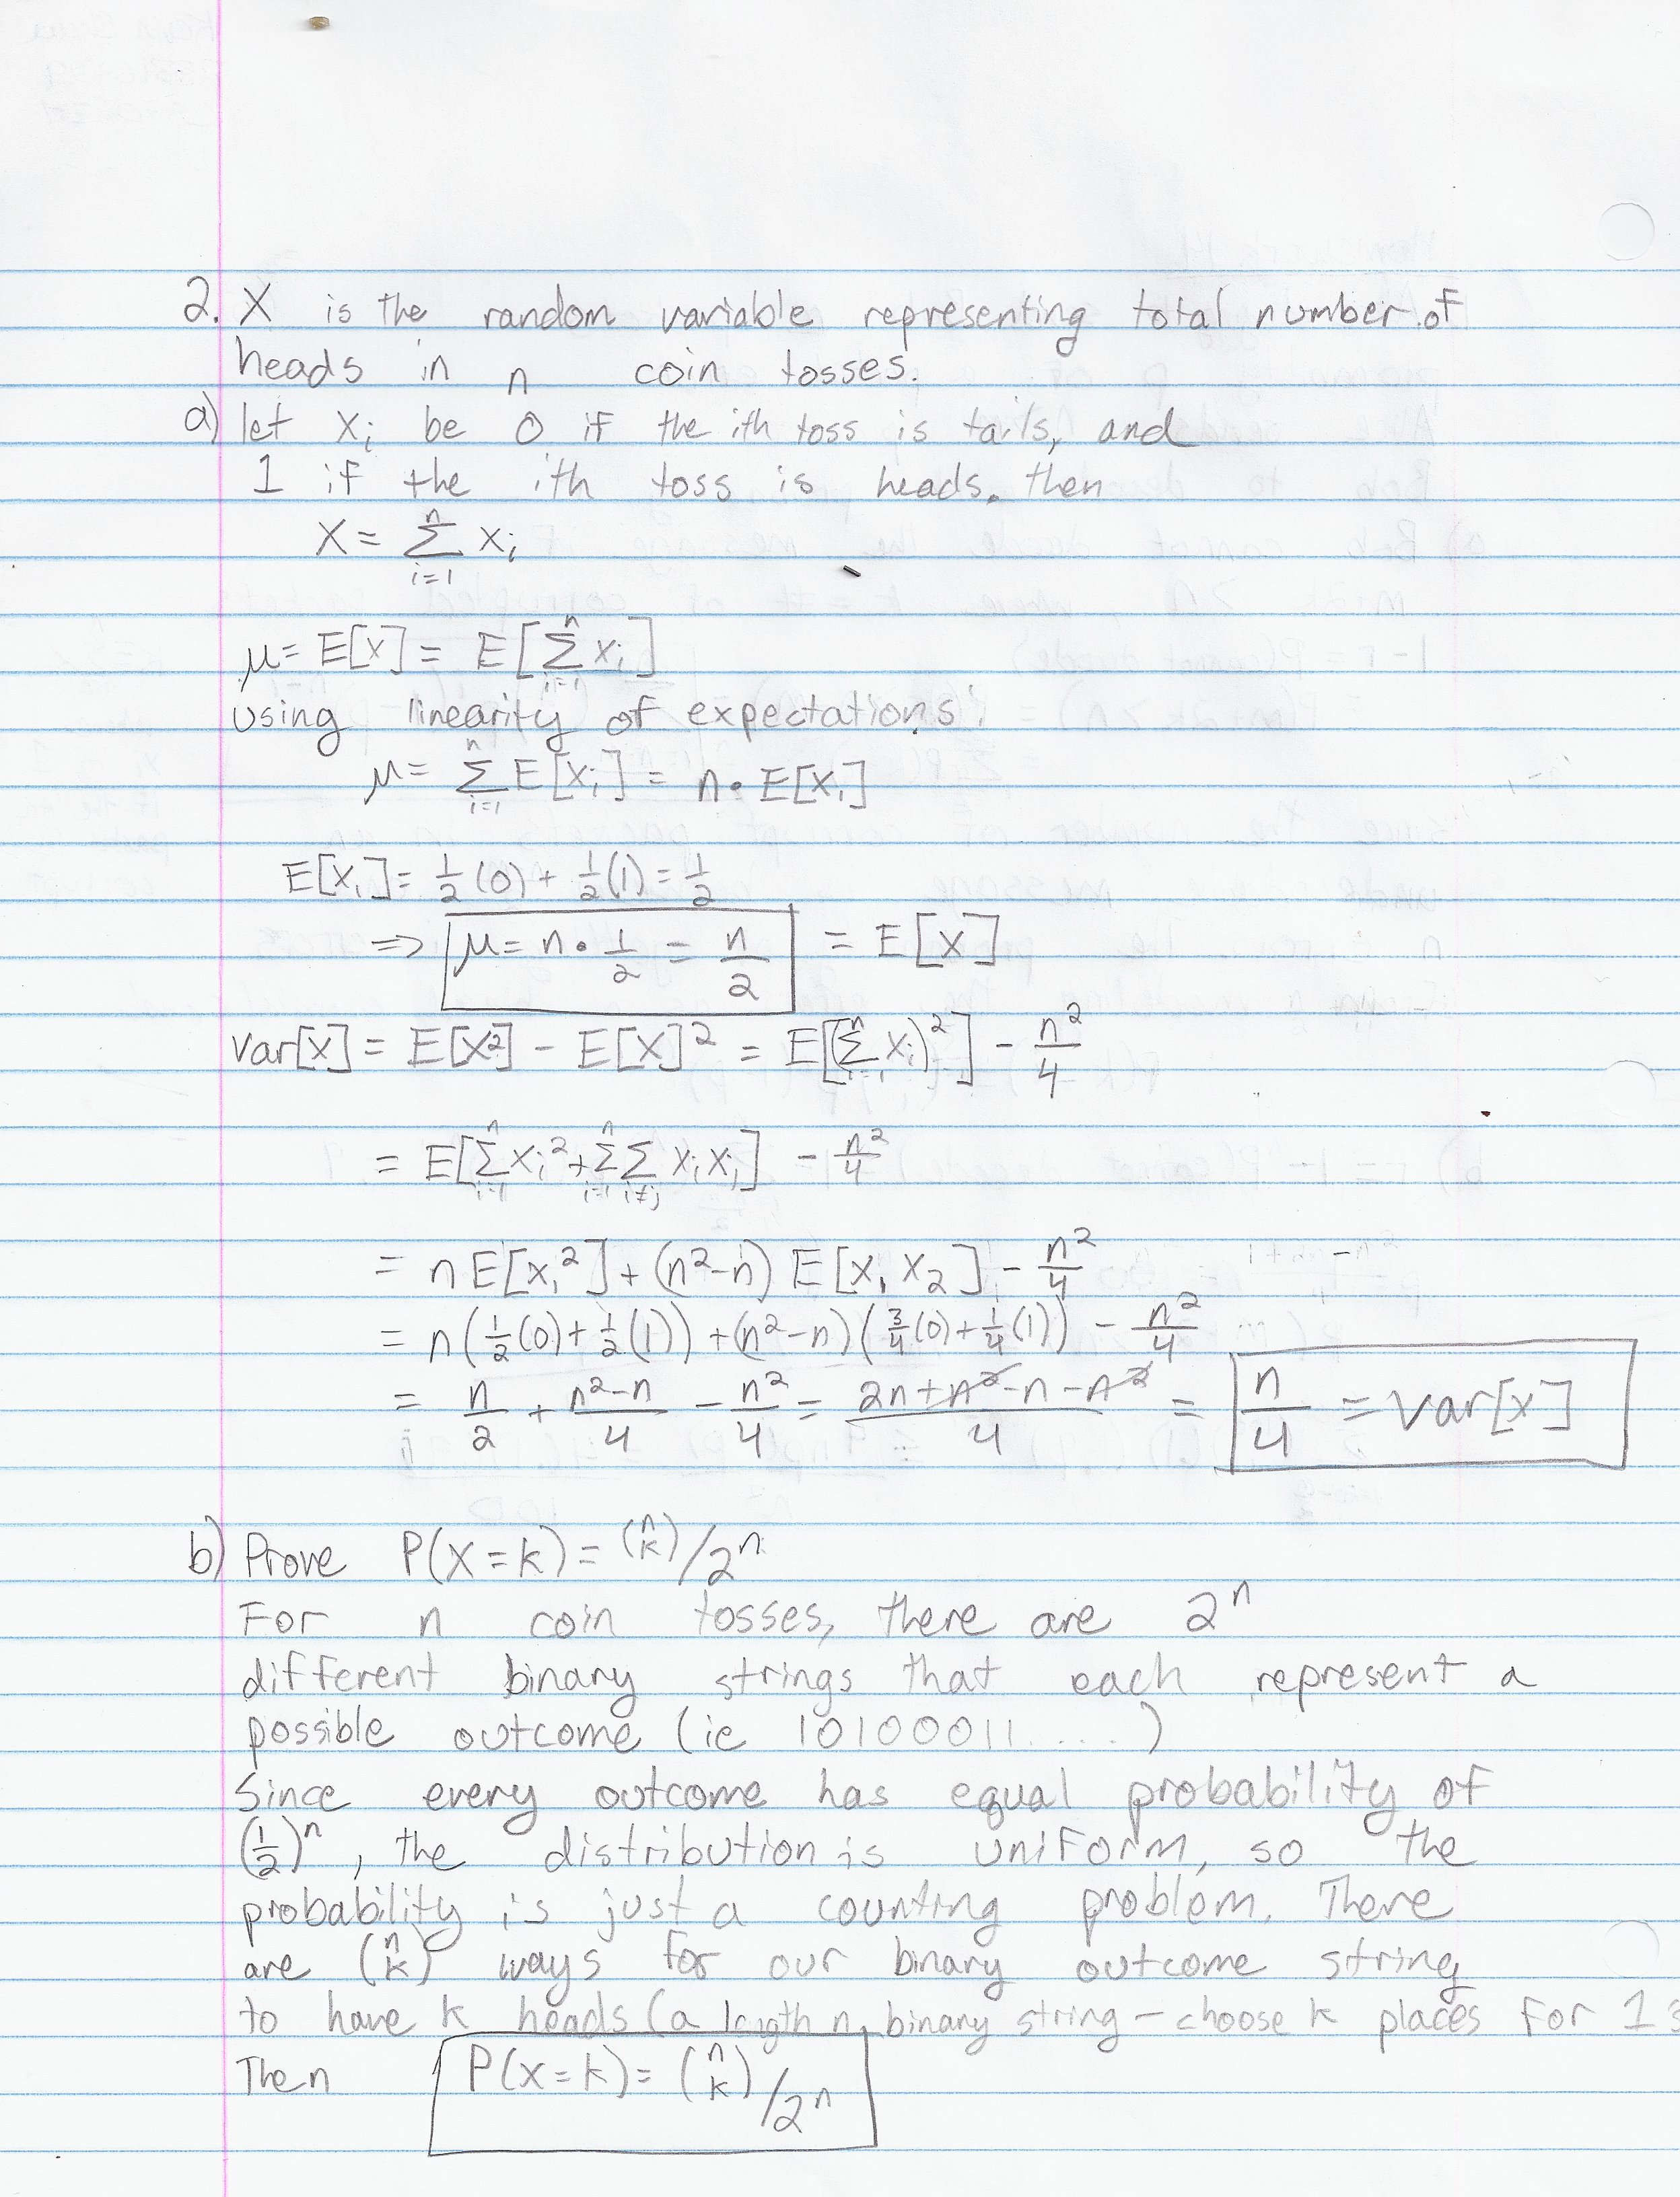 2. X is the random variable representing total number of
heads in n coin tosses.
a) let Xᵢ be 0 if the ith toss is tails, and
1 if the ith toss is heads. then
X = ∑ᵢ₌₁ⁿ Xᵢ
μ = E[X] = E[∑ᵢ₌₁ⁿ Xᵢ]
using linearity of expectations:
μ = ∑ᵢ₌₁ⁿ E[Xᵢ] = n • E[X₁]
E[X₁] = 1/2 (0) + 1/2 (1) = 1/2
=> μ = n • 1/2 = n/2 = E[X]
var[X] = E[X²] - E[X]² = E[(∑ᵢ₌₁ⁿ Xᵢ)²] - n²/4
= E[∑ᵢ₌₁ⁿ Xᵢ² + ∑ᵢ₌₁ⁿ ∑ᵢ≠ⱼ XᵢXⱼ] - n²/4
= n E[X₁²] + (n²-n) E[X₁X₂] - n²/4
= n(1/2 (0) + 1/2 (1)) + (n²-n)(3/4 (0) + 1/4 (1)) - n²/4
= n/2 + (n²-n)/4 - n²/4 = (2n+n²-n-n²)/4 = n/4 = var[X]
b) Prove P(X=k) = (n k)/2ⁿ
For n coin tosses, there are 2ⁿ
different binary strings that each represent a
possible outcome (ie 10100011.....)
Since every outcome has equal probability of
(1/2)ⁿ, the distribution is uniform, so the
probability is just a counting problem. There
are (n k) ways for our binary outcome string
to have k heads (a length n binary string - choose k places for 1s
Then P(X=k) = (n k)/2ⁿ